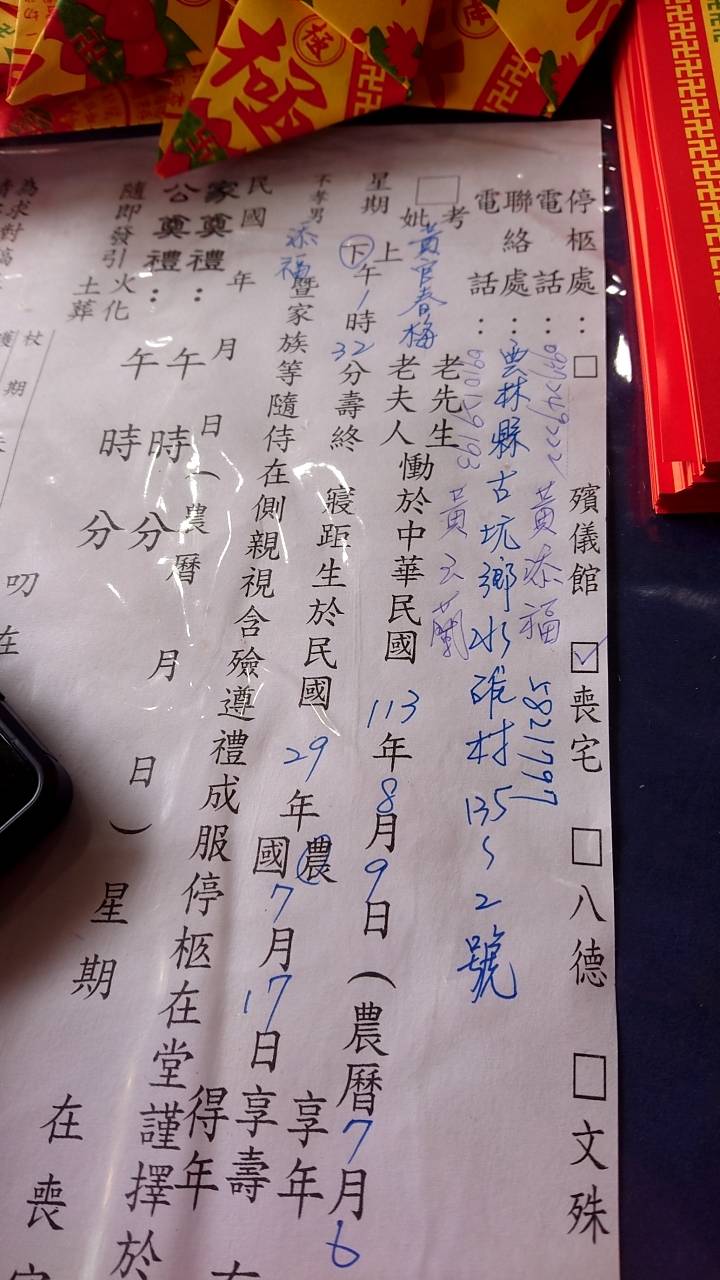 極
停柩處：□ 殯儀館 ☑喪宅 □八德 □文殊
電話： 黃添福 5821797
聯絡處：雲林縣古坑鄉水碓村135~2號
電話：0910129193 黃玉蘭
考 老先生
妣 黃官春梅 老夫人 慟於中華民國113年8月9日（農曆7月6
□
星期 上下午1時32分壽終 寢距生於民國29年農國7月17日享年享壽得年
不孝男添福暨家族等隨侍在側親視含殮遵禮成服停柩在堂謹擇於
民國 年 月 日（農曆 月 日）星期 在喪宅
家奠禮： 午 時 分
公奠禮： 午 時 分
隨即發引火化土葬
叨在
杖期